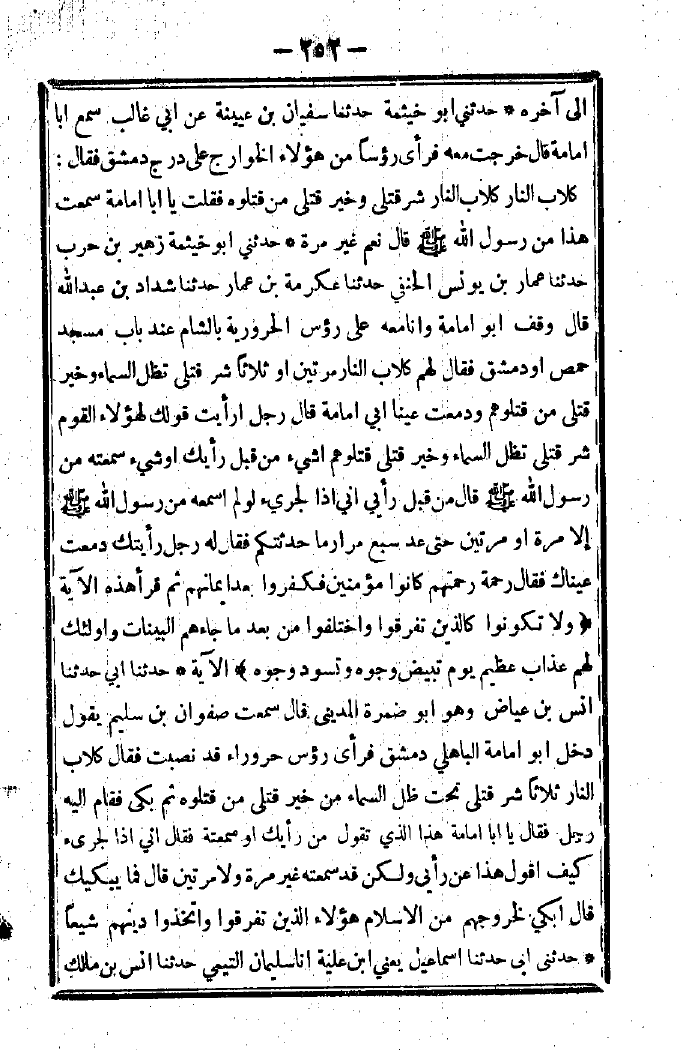 — ٢٥٢ —
الى آخره * حدثني ابو خيثمة حدثنا سفيان بن عيينة عن ابي غالب سمع ابا
امامة قال خرجت معه فرأى رؤساً من هؤلاء الخوارج على درج دمشق فقال :
كلاب النار كلاب النار شر قتلى وخير قتلى من قتلوه فقلت يا ابا امامة سمعت
هذا من رسول الله ﷺ قال نعم غير مرة * حدثني ابو خيثمة زهير بن حرب
حدثنا عمار بن يونس الحنفي حدثنا عكرمة بن عمار حدثنا شداد بن عبدالله
قال وقف ابو امامة وانا معه على رؤس الحرورية بالشام عند باب مسجد
حمص او دمشق فقال لهم كلاب النار مرتين او ثلاثاً شر قتلى تظل السماء وخير
قتلى من قتلوهم ودمعت عينا ابي امامة قال رجل ارأيت قولك لهؤلاء القوم
شر قتلى تظل السماء وخير قتلى قتلوهم اشيء من قبل رأيك او شيء سمعته من
رسول الله ﷺ قال من قبل رأيي اني اذا لجريء لو لم اسمعه من رسول الله ﷺ
إلا مرة او مرتين حتى عد سبع مرار ما حدثتكم فقال له رجل رأيتك دمعت
عيناك فقال رحمة رحمتهم كانوا مؤمنين فكفروا بعد ايمانهم ثم قرأ هذه الآية
﴿ ولا تكونوا كالذين تفرقوا واختلفوا من بعد ما جاءهم البينات واولئك
لهم عذاب عظيم يوم تبيض وجوه وتسود وجوه ﴾ الآية * حدثنا ابي حدثنا
انس بن عياض وهو ابو ضمرة المديني قال سمعت صفوان بن سليم يقول
دخل ابو امامة الباهلي دمشق فرأى رؤس حروراء قد نصبت فقال كلاب
النار ثلاثاً شر قتلى تحت ظل السماء من خير قتلى من قتلوه ثم بكى فقام اليه
رجل فقال يا ابا امامة هذا الذي تقول من رأيك او سمعتة فقال اني اذا لجرىء
كيف اقول هذا عن رأيى ولكن قد سمعته غير مرة ولا مرتين قال فما يبكيك
قال ابكي لخروجهم من الاسلام هؤلاء الذين تفرقوا واتخذوا دينهم شيعاً
* حدثنى ابى حدثنا اسماعيل يعني ابن علية انا سليمان التيمي حدثنا انس بن مالك